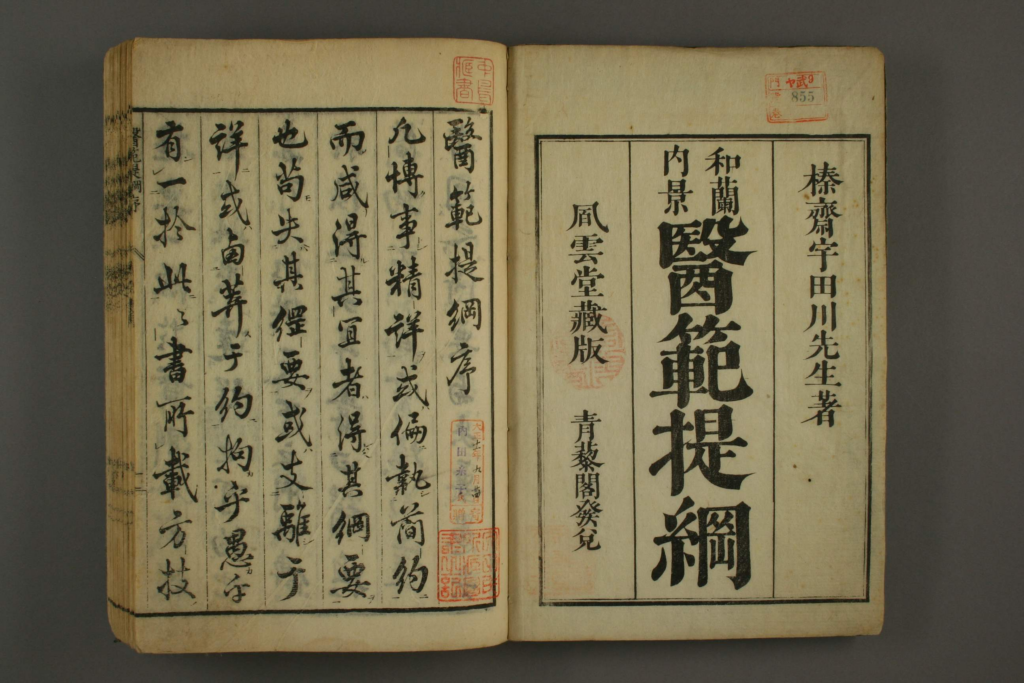 榛齋宇田川先生著
和蘭
内景
醫範提綱
風雲堂藏版
青藜閣發兌
855
醫範提綱序
凡博事精詳或偏執簡約
而咸得其宜者得其綱要
也苟失其經要或支離于
詳或鹵莽于約拘乎愚乎
有一於此書所載方技